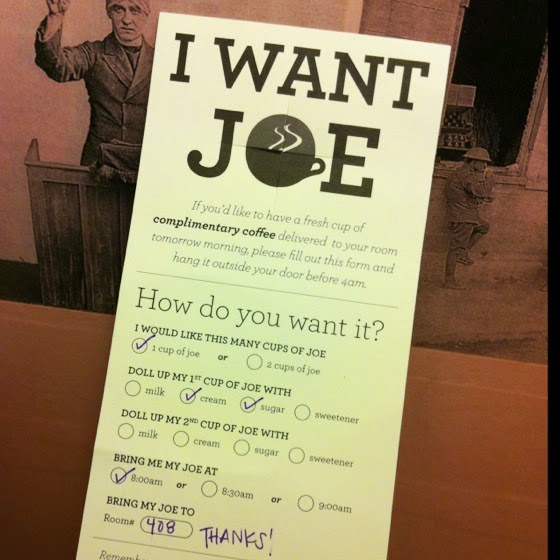 I WANT
JOE
If you'd like to have a fresh cup of
complimentary coffee delivered to your room
tomorrow morning, please fill out this form and
hang it outside your door before 4am.
How do you want it?
I WOULD LIKE THIS MANY CUPS OF JOE
1 cup of joe or 2 cups of joe
DOLL UP MY 1ST CUP OF JOE WITH
milk cream sugar sweetener
DOLL UP MY 2ND CUP OF JOE WITH
milk cream sugar sweetener
BRING ME MY JOE AT
8:00am or 8:30am or 9:00am
BRING MY JOE TO
Room# 408 THANKS!